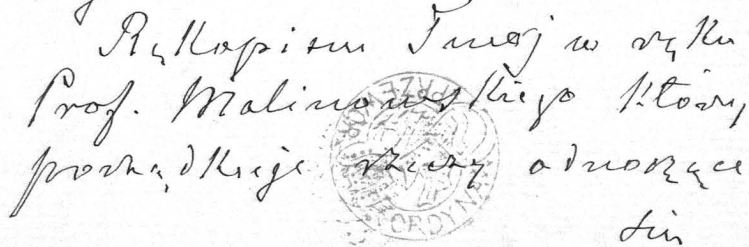 Rękopism Twój w ręku
Prof. Malinowskiego który
porządkuje rzeczy odnoszące
się